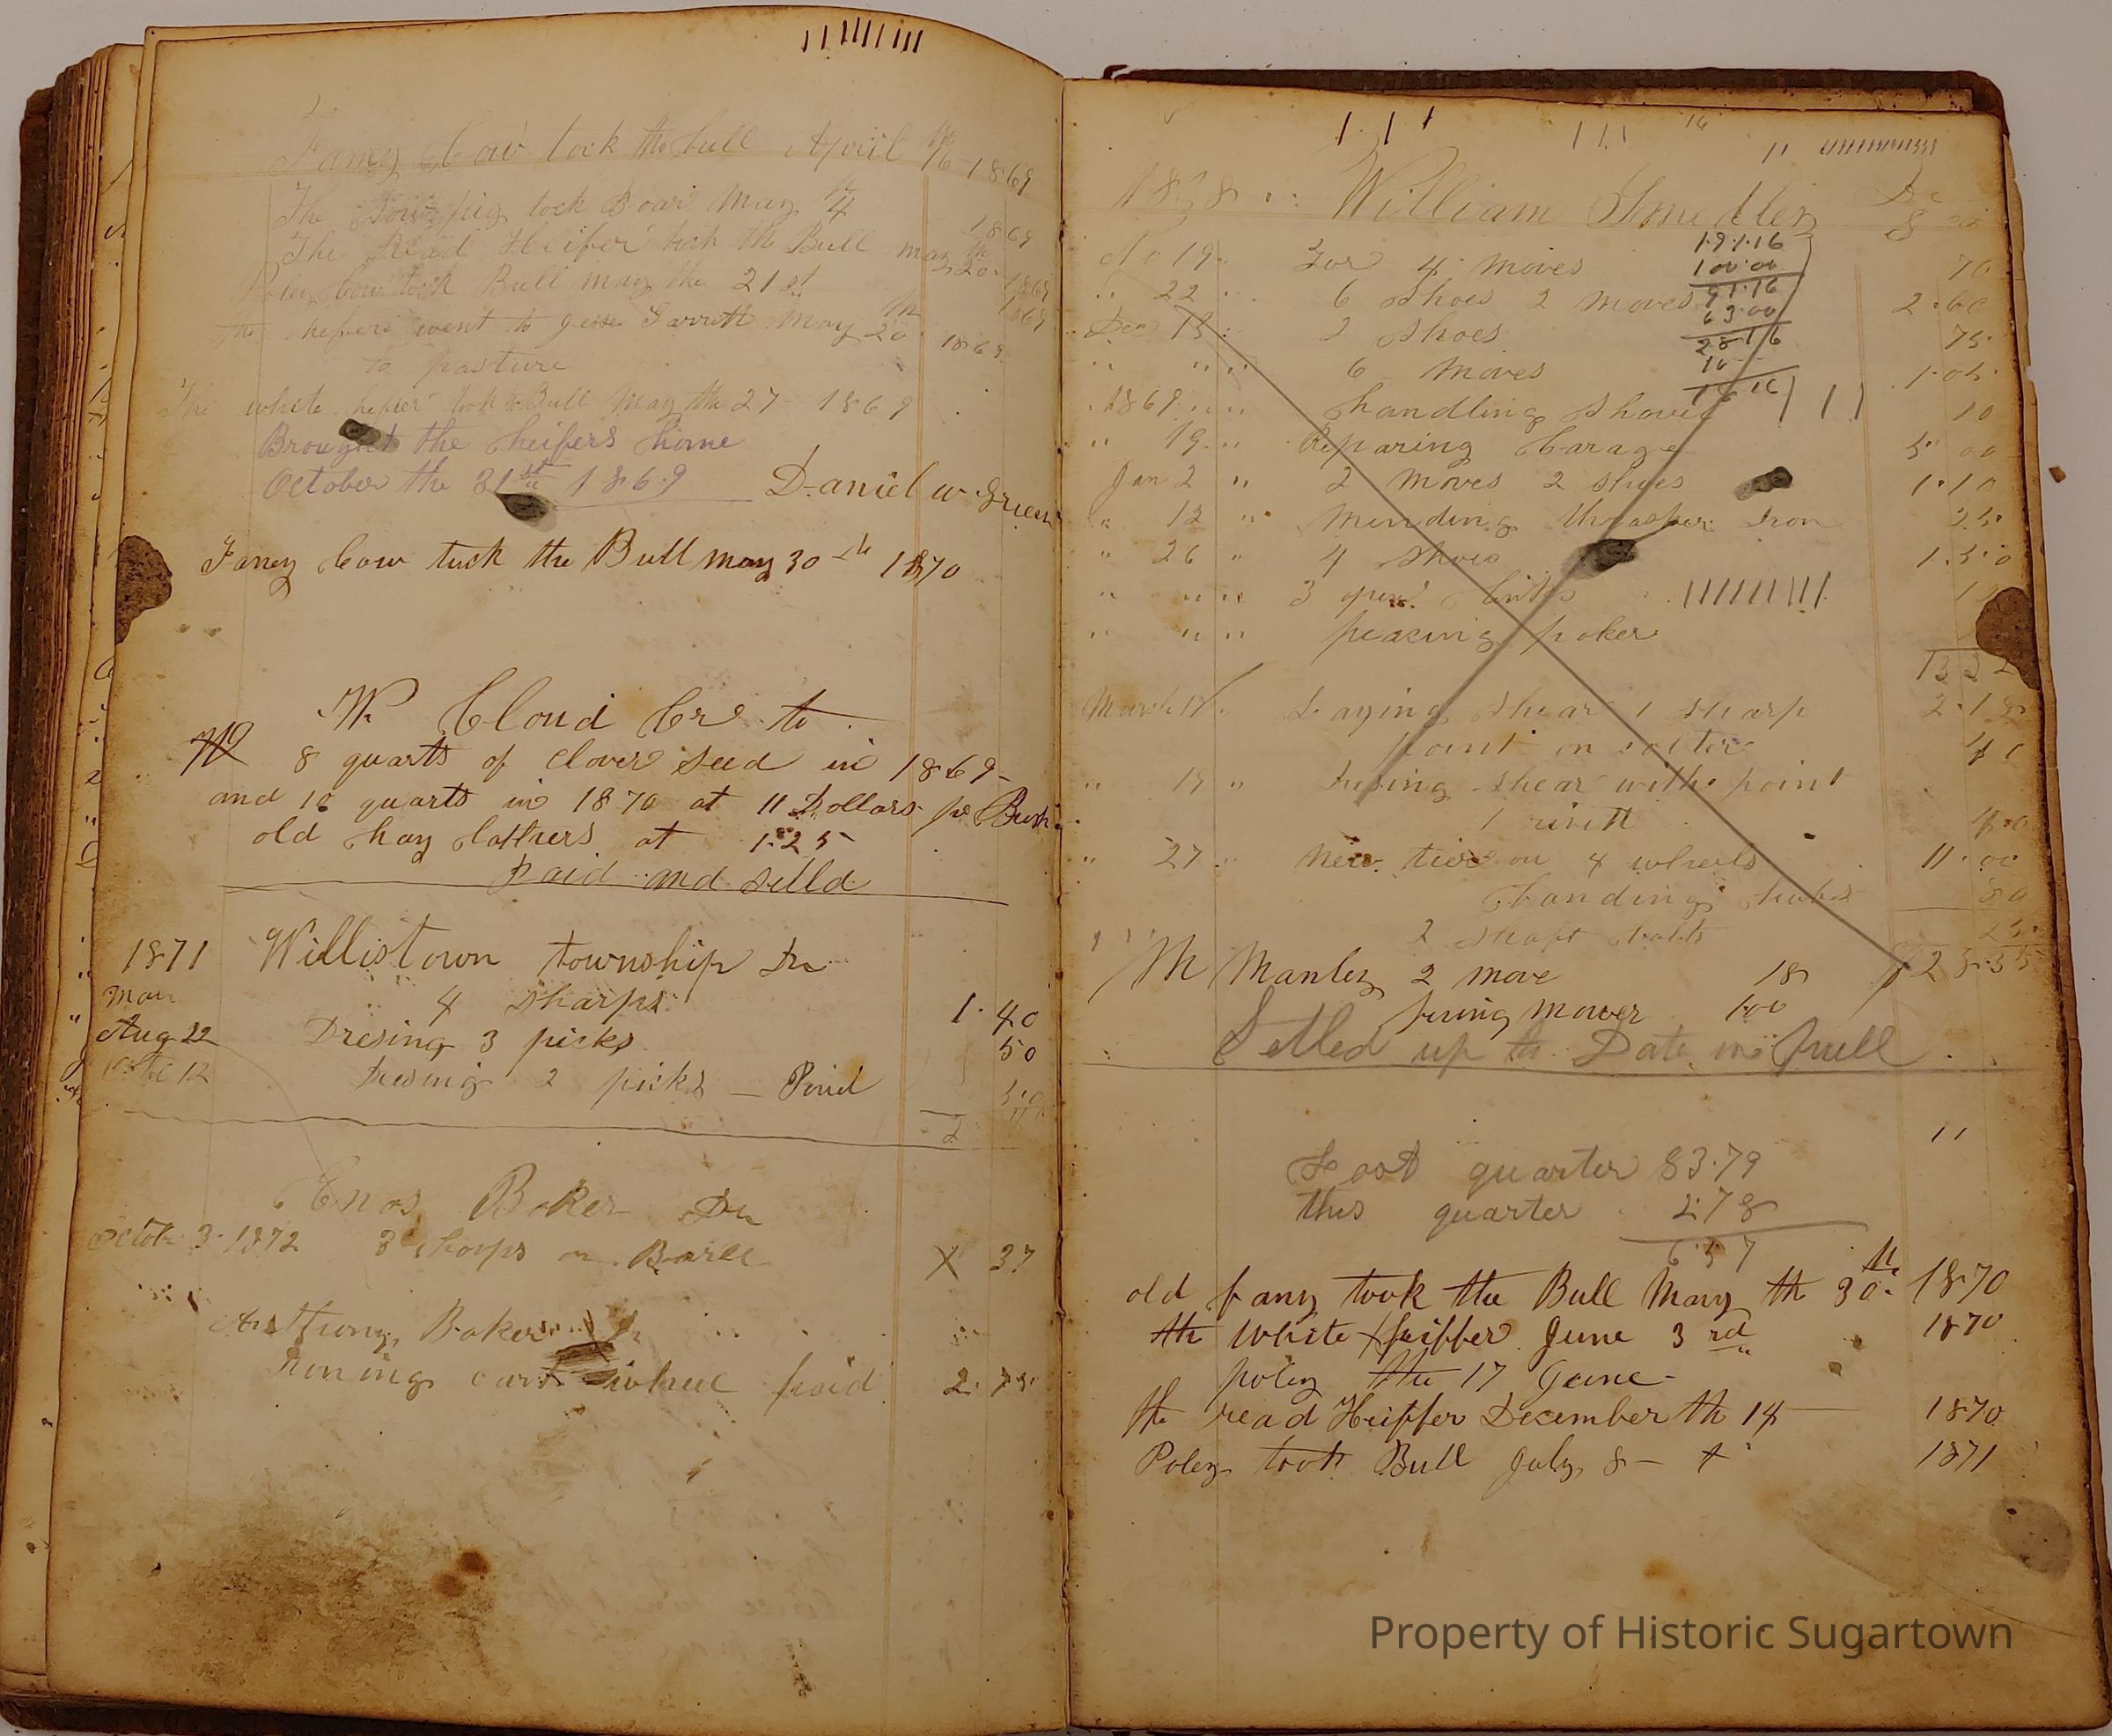 Fancy Cow took the bull April 16th 1869
The Sow pig took Boar May 4th 1869
The Read Heifer took the Bull may 20th 1869
Poley Cow took Bull may the 21st 1869
the heifers went to Jesse Garrett May 20th 1869
to pasture
The white heifer took Bull May the 27 1869
Brought the heifers home
October the 31st 1869
Daniel w Green
Fancy Cow tuck the Bull may 30th 1870
W Cloud Cr to
8 quarts of Clover Seed in 1869
and 10 quarts in 1870 at 11 Dollars pr Bush
old hay at 1.25
Paid and
1871 Willistown township Dr
4 sharps 1.40
Aug 22 Dresing 3 picks 50
12 Dresing 2 picks — Paid
2
Enos Baker Dr
Octob 3 1872 3 on X 37
Baker
cart wheel paid 2.75
William Smedley Dr
19 For 4 moves 70
" 22 " 6 Shoes 2 moves 2.60
Dec 13 " 2 Shoes 75
" " " 6 moves 1.05
191.16
100.00
91.16
63.00
28 16
10
1869 " " handling Shovel 10
" 19 " Reparing Carage 5 00
Jan 2 " 2 moves 2 shoes 1.10
" 12 " Mending Iron 25
" 26 " 4 Shoes 1.50
" " " 3 open links
" " " poker
March 17 Laying Shear 1 sharp
point on
" 19 " shear with point
1
" 27 " New tire on 4 wheels 11.00
banding 80
2 shaft bolts 25
M Manley 2 move 18
mower 100
Setled up to Date in full
Last quarter 83.79
this quarter 2.78
old fany took the Bull May th 30th 1870
th White heiffer June 3rd 1870
poley the 17 June
the read Heiffer December th 14 1870
Poley took Bull July 8 — 1871
Property of Historic Sugartown